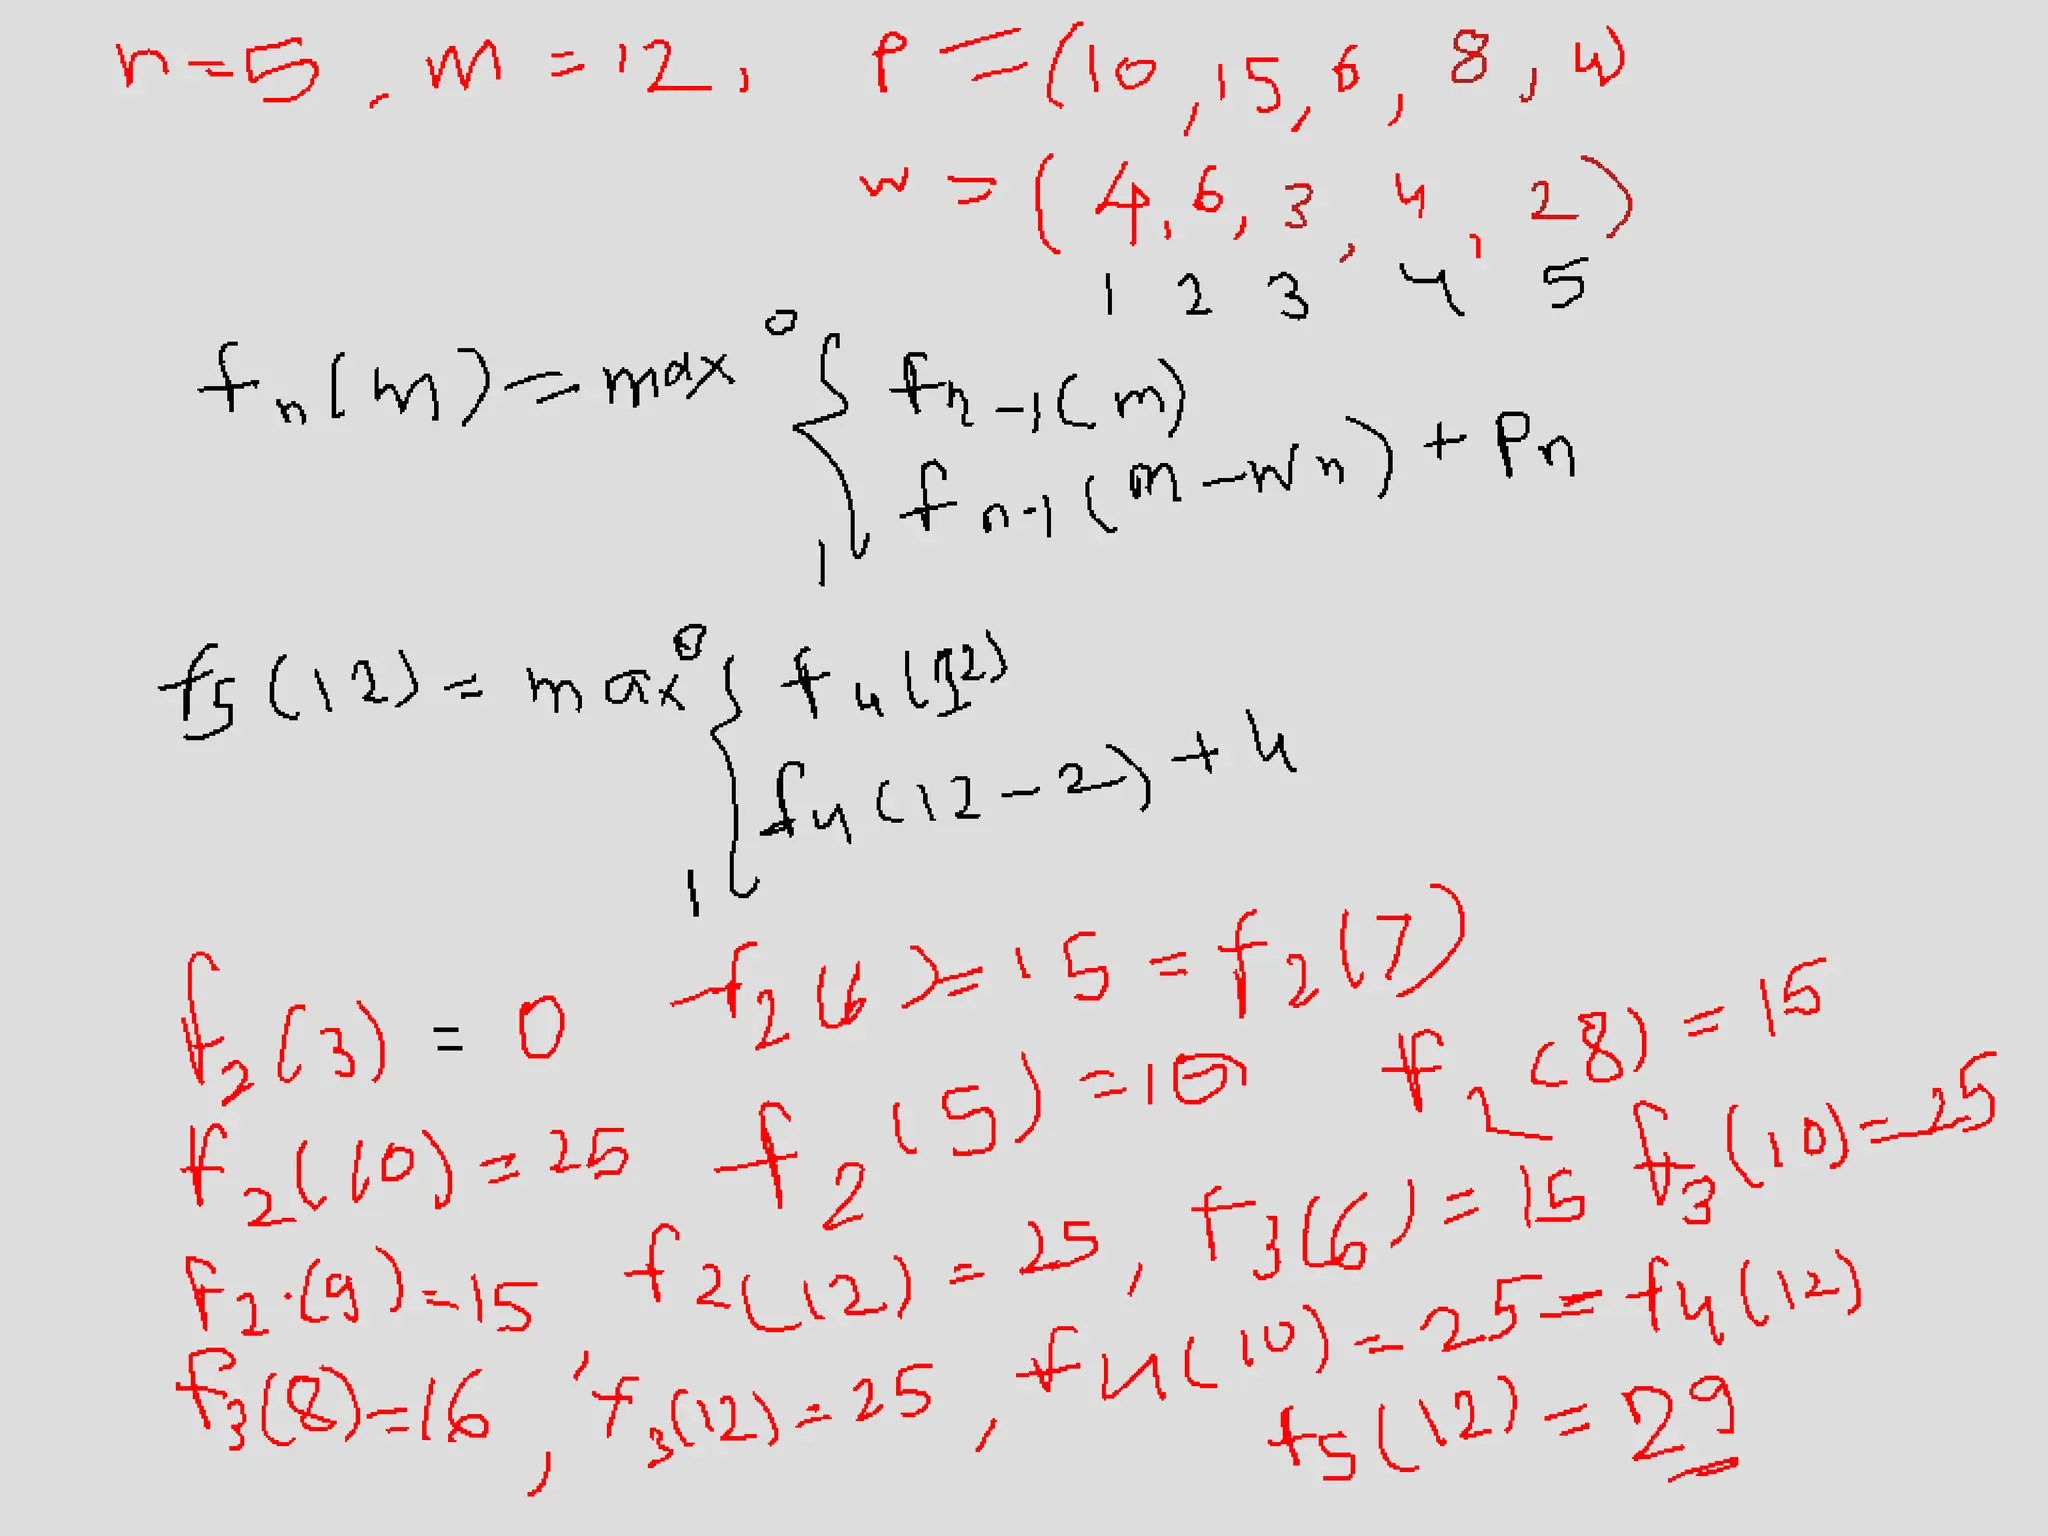 n=5, m=12, P=(10,15,6,8,4)
w=(4,6,3,4,2)
1 2 3 4 5
fn(m)=max { 0 fn-1(m)
1 fn-1(m-wn)+Pn
f5(12)=max { 0 f4(12)
1 f4(12-2)+4
f2(3)=0 f2(6)=15=f2(7)
f2(8)=15
f2(10)=25 f2(5)=10
f3(10)=25
f2.(9)=15, f2(12)=25, f3(6)=15
f3(8)=16, f3(12)=25, f4(10)=25=f4(12)
f5(12)=29